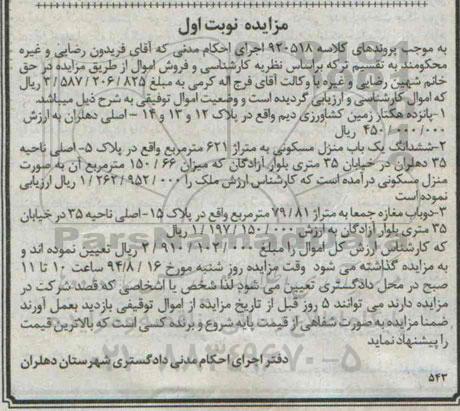 مزایده نوبت اول
به موجب پرونده‌های کلاسه ۹۲۰۵۱۸ اجرای احکام مدنی که آقای فریدون رضایی و غیره
محکومند به تقسیم ترکه براساس نظریه کارشناسی و فروش اموال از طریق مزایده در حق
خانم شهین رضایی و غیره با وکالت آقای فرج اله کرمی به مبلغ ۳/۵۸۷/۲۰۶/۸۲۵ ریال
که اموال کارشناسی و ارزیابی گردیده است و وضعیت اموال توقیفی به شرح ذیل میباشد.
۱-پانزده هکتار زمین کشاورزی دیم واقع در پلاک ۱۲ و ۱۳ و ۱۴ – اصلی دهلران به ارزش
۴۵۰/۰۰۰/۰۰۰ ریال
۲-ششدانگ یک باب منزل مسکونی به متراژ ۶۲۱ مترمربع واقع در پلاک ۵- اصلی ناحیه
۳۵ دهلران در خیابان ۳۵ متری بلوار آزادگان که میزان ۱۵۰/۶۶ مترمربع آن به صورت
منزل مسکونی درآمده است که کارشناس ارزش ملک را ۱/۲۶۲/۹۵۲/۰۰۰ ریال ارزیابی
نموده است
۳-دوباب مغازه جمعا به متراژ ۷۹/۸۱ مترمربع واقع در پلاک ۱۵-اصلی ناحیه ۳۵ در خیابان
۳۵ متری بلوار آزادگان به ارزش ۱/۱۹۷/۱۵۰/۰۰۰ ریال
که کارشناس ارزش کل اموال را مبلغ ۲/۹۱۰/۱۰۲/۰۰۰ ریال تعیین نموده اند و
به مزایده گذاشته می شود وقت مزایده روز شنبه مورخ ۹۴/۸/۱۶ ساعت ۱۰ تا ۱۱
صبح در محل دادگستری تعیین می شود لذا شخص یا اشخاصی که قصد شرکت در
مزایده دارند می توانند ۵ روز قبل از تاریخ مزایده از اموال توقیفی بازدید بعمل آورند
ضمنا مزایده به صورت شفاهی از قیمت پایه شروع و برنده کسی است که بالاترین قیمت
را پیشنهاد نماید
دفتر اجرای احکام مدنی دادگستری شهرستان دهلران
۵۴۳
ParsNamadData
۰۲۱-۸۸۳۴۹۶۷۰-۵